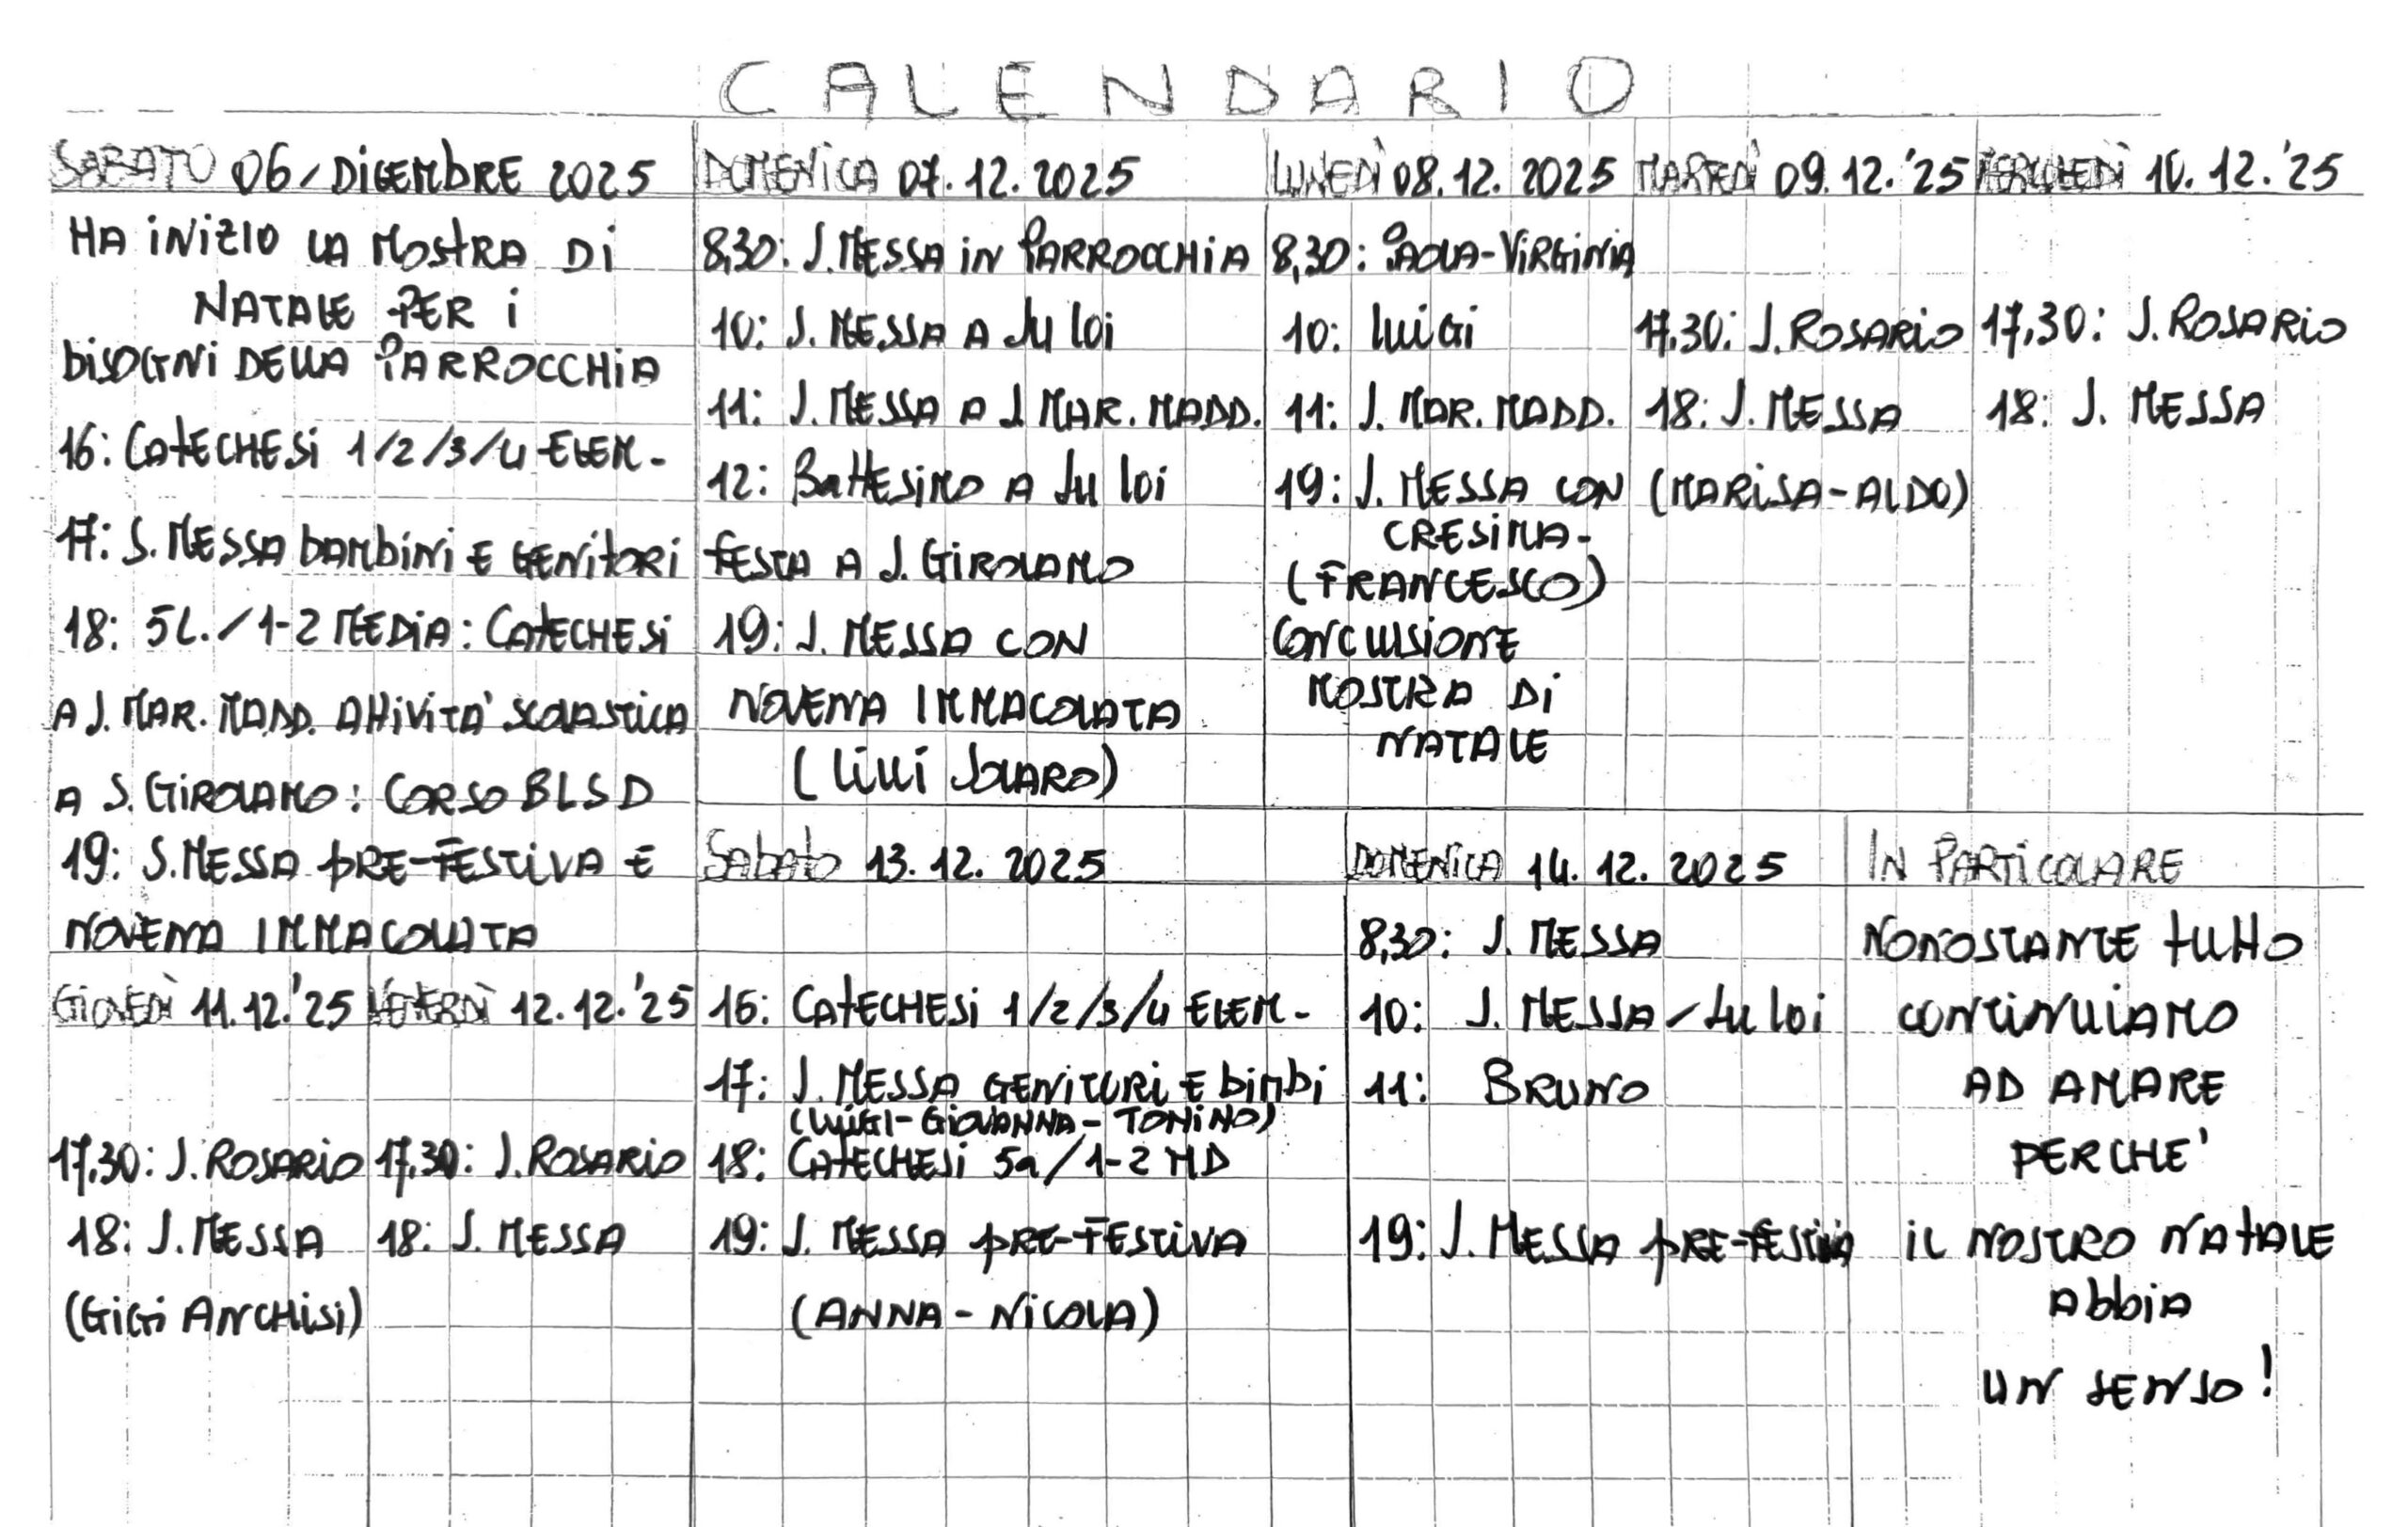 CALENDARIO
SABATO 06/DICEMBRE 2025
HA INIZIO LA MOSTRA DI
NATALE PER I
BISOGNI DELLA PARROCCHIA
16: CATECHESI 1/2/3/4 ELEM-
17: S. MESSA BAMBINI E GENITORI
18: 5L./1-2 MEDIA: CATECHESI
A S. MAR. MADD. ATTIVITA' SCOLASTICA
A S. GIROLAMO: CORSO BLSD
19: S. MESSA PRE-FESTIVA E
NOVENA IMMACOLATA
DOMENICA 07.12.2025
8,30: S. MESSA IN PARROCCHIA
10: S. MESSA A SU LOI
11: S. MESSA A S MAR. MADD.
12: BATTESIMO A SU LOI
FESTA A S. GIROLAMO
19: S. MESSA CON
NOVENA IMMACOLATA
(LILLI SOLARO)
LUNEDÌ 08.12.2025
8,30: PAOLA-VIRGINIA
10: LUIGI
11: S. MAR. MADD.
19: S. MESSA CON
CRESIMA-
(FRANCESCO)
CONCLUSIONE
MOSTRA DI
NATALE
MARTEDÌ 09.12.'25
17,30: S. ROSARIO
18: S. MESSA
(MARISA-ALDO)
MERCOLEDÌ 10.12.'25
17,30: S. ROSARIO
18: S. MESSA
GIOVEDÌ 11.12.'25
17,30: S. ROSARIO
18: S. MESSA
(GIGI ANCHISI)
VENERDÌ 12.12.'25
17,30: S. ROSARIO
18: S. MESSA
Sabato 13.12.2025
16: CATECHESI 1/2/3/4 ELEM-
17: S. MESSA GENITORI E BIMBI
(LUIGI-GIOVANNA-TONINO)
18: CATECHESI 5a/1-2 MD
19: S. MESSA PRE-FESTIVA
(ANNA-NICOLA)
DOMENICA 14.12.2025
8,30: S. MESSA
10: S. MESSA/SU LOI
11: BRUNO
19: S. MESSA PRE-FESTIVA
IN PARTICOLARE
NONOSTANTE TUTTO
CONTINUIAMO
AD AMARE
PERCHE'
IL NOSTRO NATALE
ABBIA
UN SENSO!